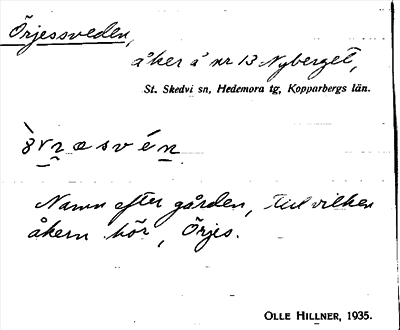 Örjessveden,
åker å nr 13 Nyberget,
St. Skedvi sn, Hedemora tg, Kopparbergs län.
Namn efter gården, till vilken
åkern hör, Örjes.
OLLE HILLNER, 1935.